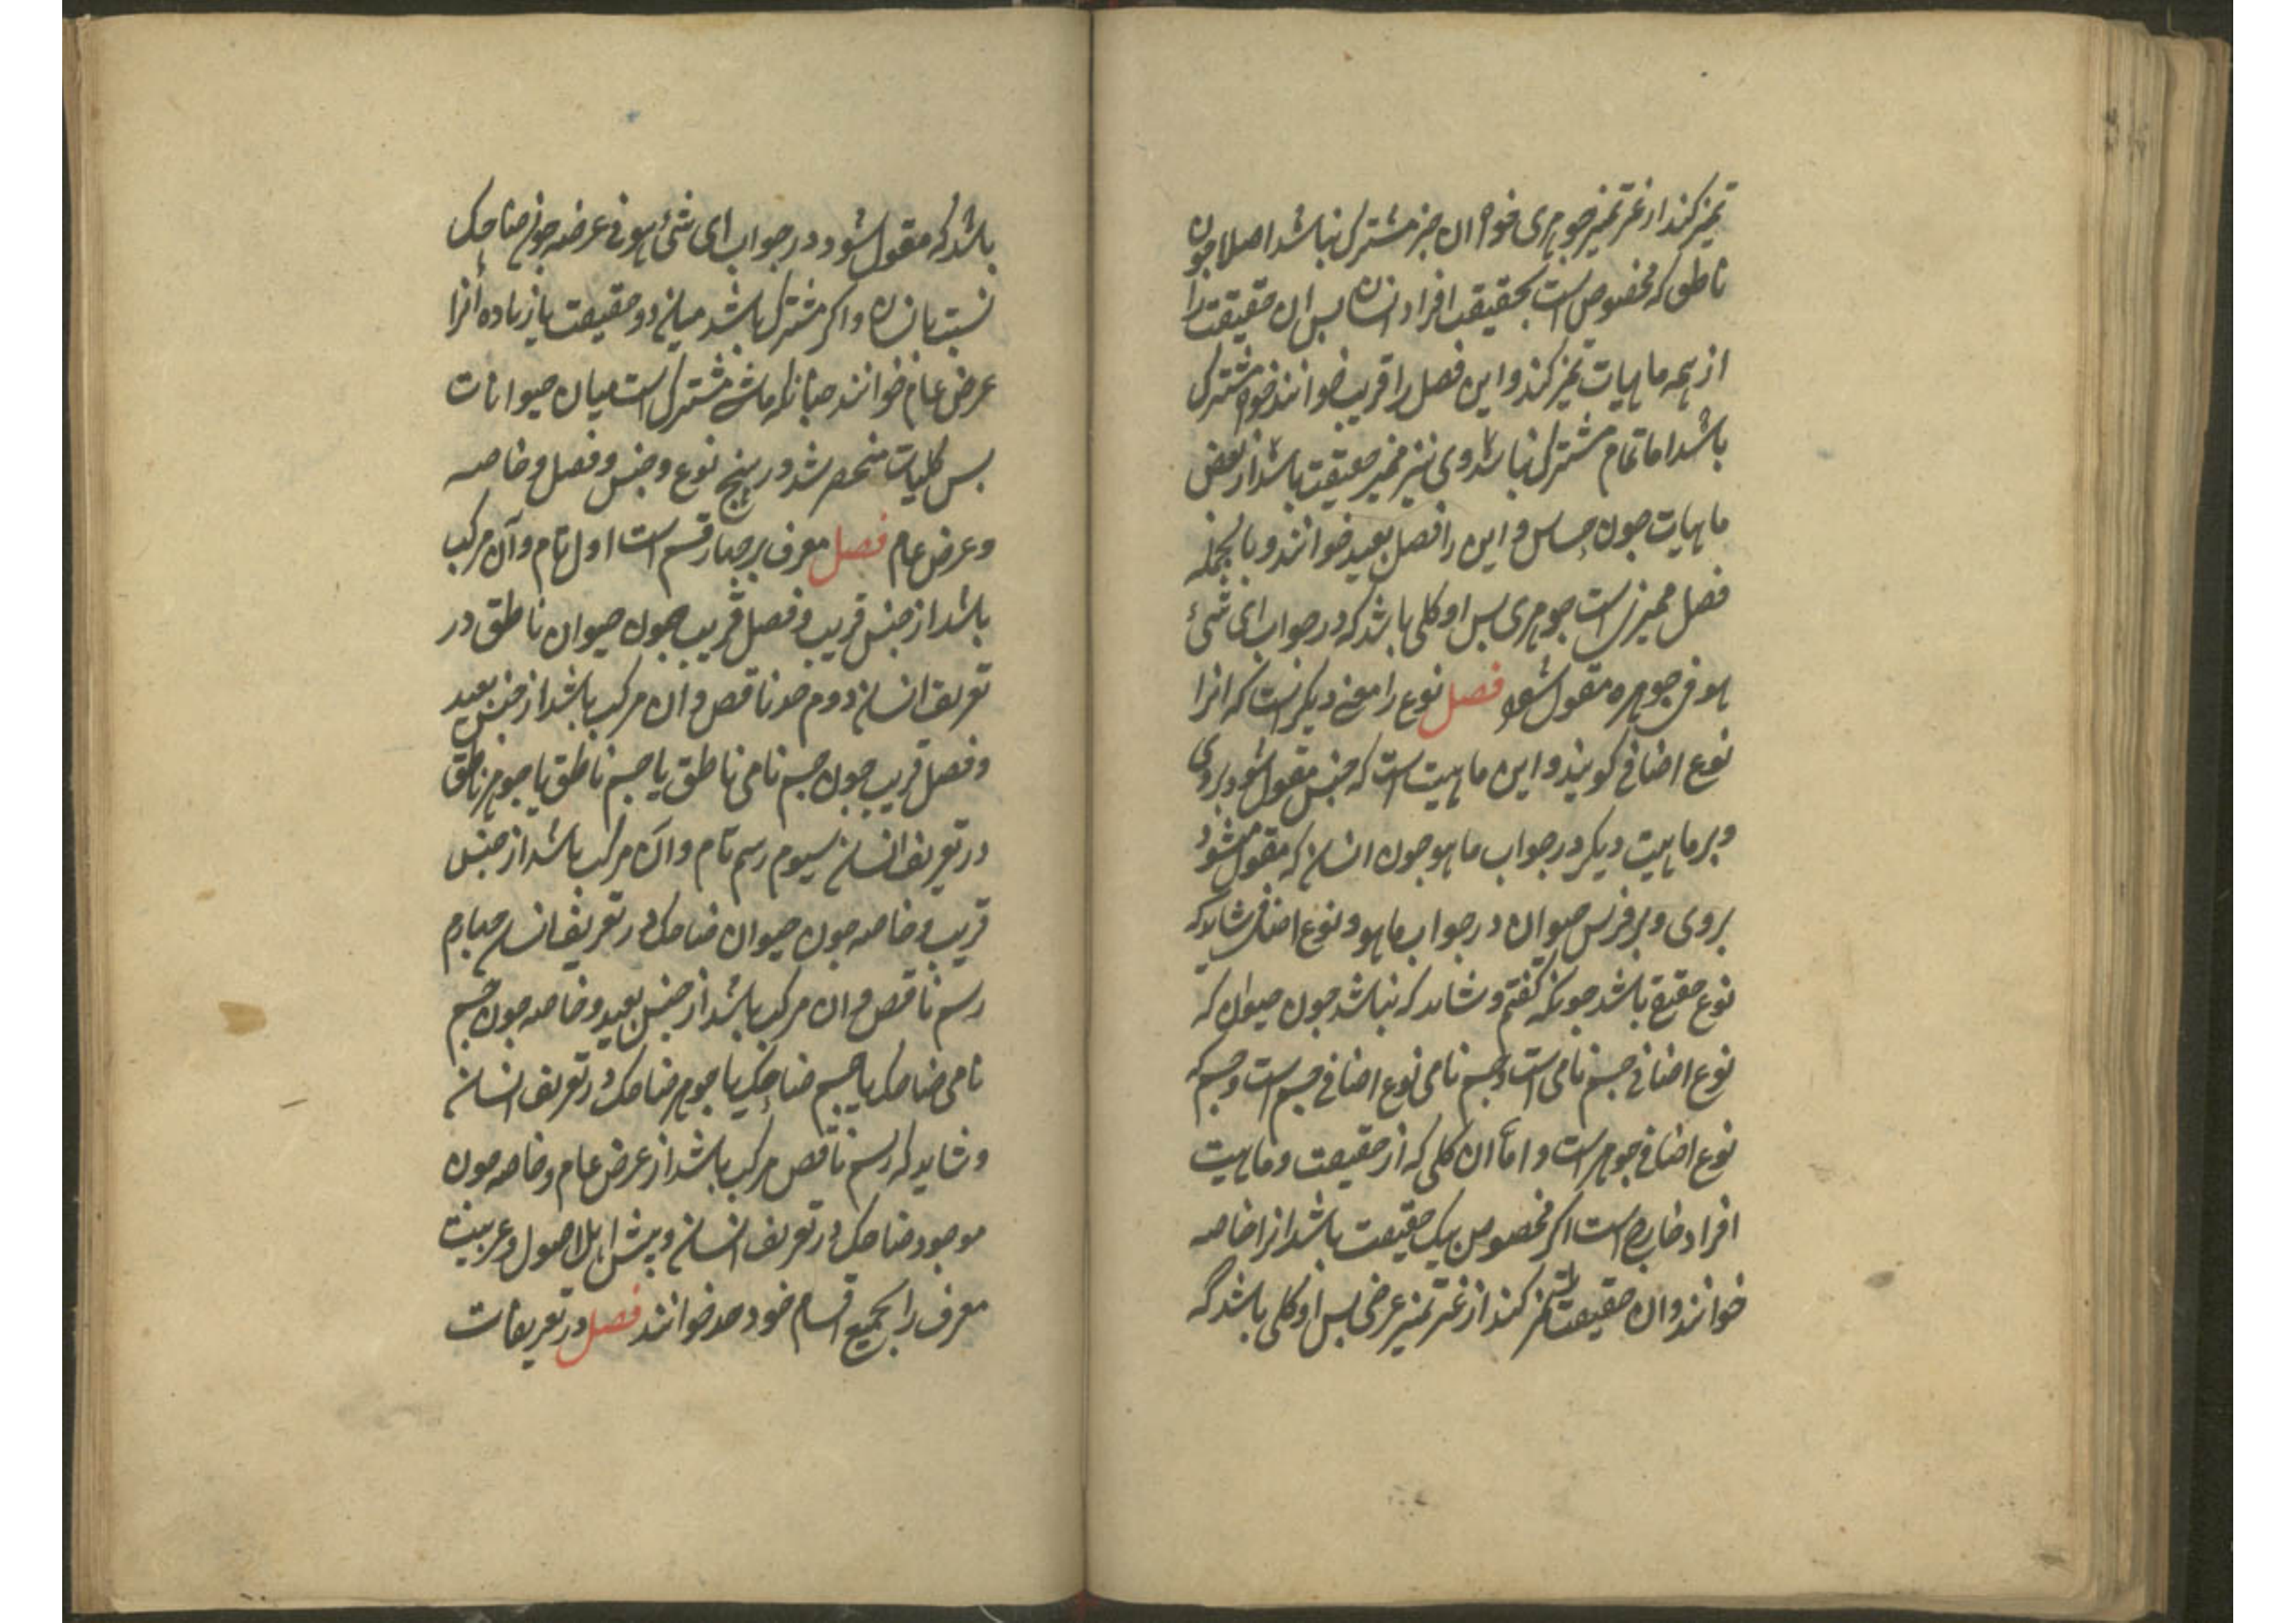 تمیز کند از غیر تمیز جوهری خواه ان جز مشترک نباشد اصلا جون
ناطق که مخصوص است بحقیقت افراد انسان بس ان حقیقت را
از همه ماهیات تمیز کند و این فصل را قریب خوانند خواه مشترک
باشد اما تمام مشترک نباشد وی نیز ممیز حقیقت باشد از بعض
ماهیات جون حساس و این را فصل بعید خوانند و بالجمله
فصل ممیزیست جوهری بس او کلی باشد که در جواب ای شیٔ
هو فی جوهره مقول شود فصل نوع را معنی دیکر است که انرا
نوع اضافی کویند و این ماهیت است که جنس مقول شود بر وی
و بر ماهیت دیکر در جواب ما هو جون انسان که مقول میشود
بر وی و بر فرس حیوان در جواب ما هو و نوع اضافی شاید که
نوع حقیقی باشد جونکه کفتم و شاید که نباشد جون حیوان که
نوع اضافی جسم نامی است و جسم نامی نوع اضافی جسم است و جسم که
نوع اضافی جوهر است و اما ان کلی که از حقیقت و ماهیت
افراد خارج است اکر مخصوص بیک حقیقت باشد انرا خاصه
خوانند و ان حقیقت را تمیز کند از غیر تمیز عرضی بس او کلی باشد که
باشد که مقول شود در جواب ای شیٔ هو فی عرضه جون ضاحک
نسبت بانسان و اکر مشترک باشد میان دو حقیقت یا زیاده آنرا
عرض عام خوانند جنانکه ماشی مشترک است میان حیوانات
بس کلیات منحصر شد در پنج نوع و جنس و فصل و خاصه
و عرض عام فصل معرف بر جهار قسم است اول تام و آن مرکب
باشد از جنس قریب و فصل قریب جون حیوان ناطق در
تعریف انسان دوم حد ناقص و ان مرکب باشد از جنس بعید
و فصل قریب جون جسم نامی ناطق یا جسم ناطق یا جوهر ناطق
در تعریف انسان سیوم رسم تام و آن مرکب باشد از جنس
قریب و خاصه جون حیوان ضاحک در تعریف انسان جهارم
رسم ناقص و ان مرکب باشد از جنس بعید و خاصه جون جسم
نامی ضاحک یا جسم ضاحک یا جوهر ضاحک در تعریف انسان
و شاید که رسم ناقص مرکب باشد از عرض عام و خاصه جون
موجود ضاحک در تعریف انسان و پیش اهل اصول و عربیت
معرف را بجمیع اقسام خود حد خوانند فصل در تعریفات